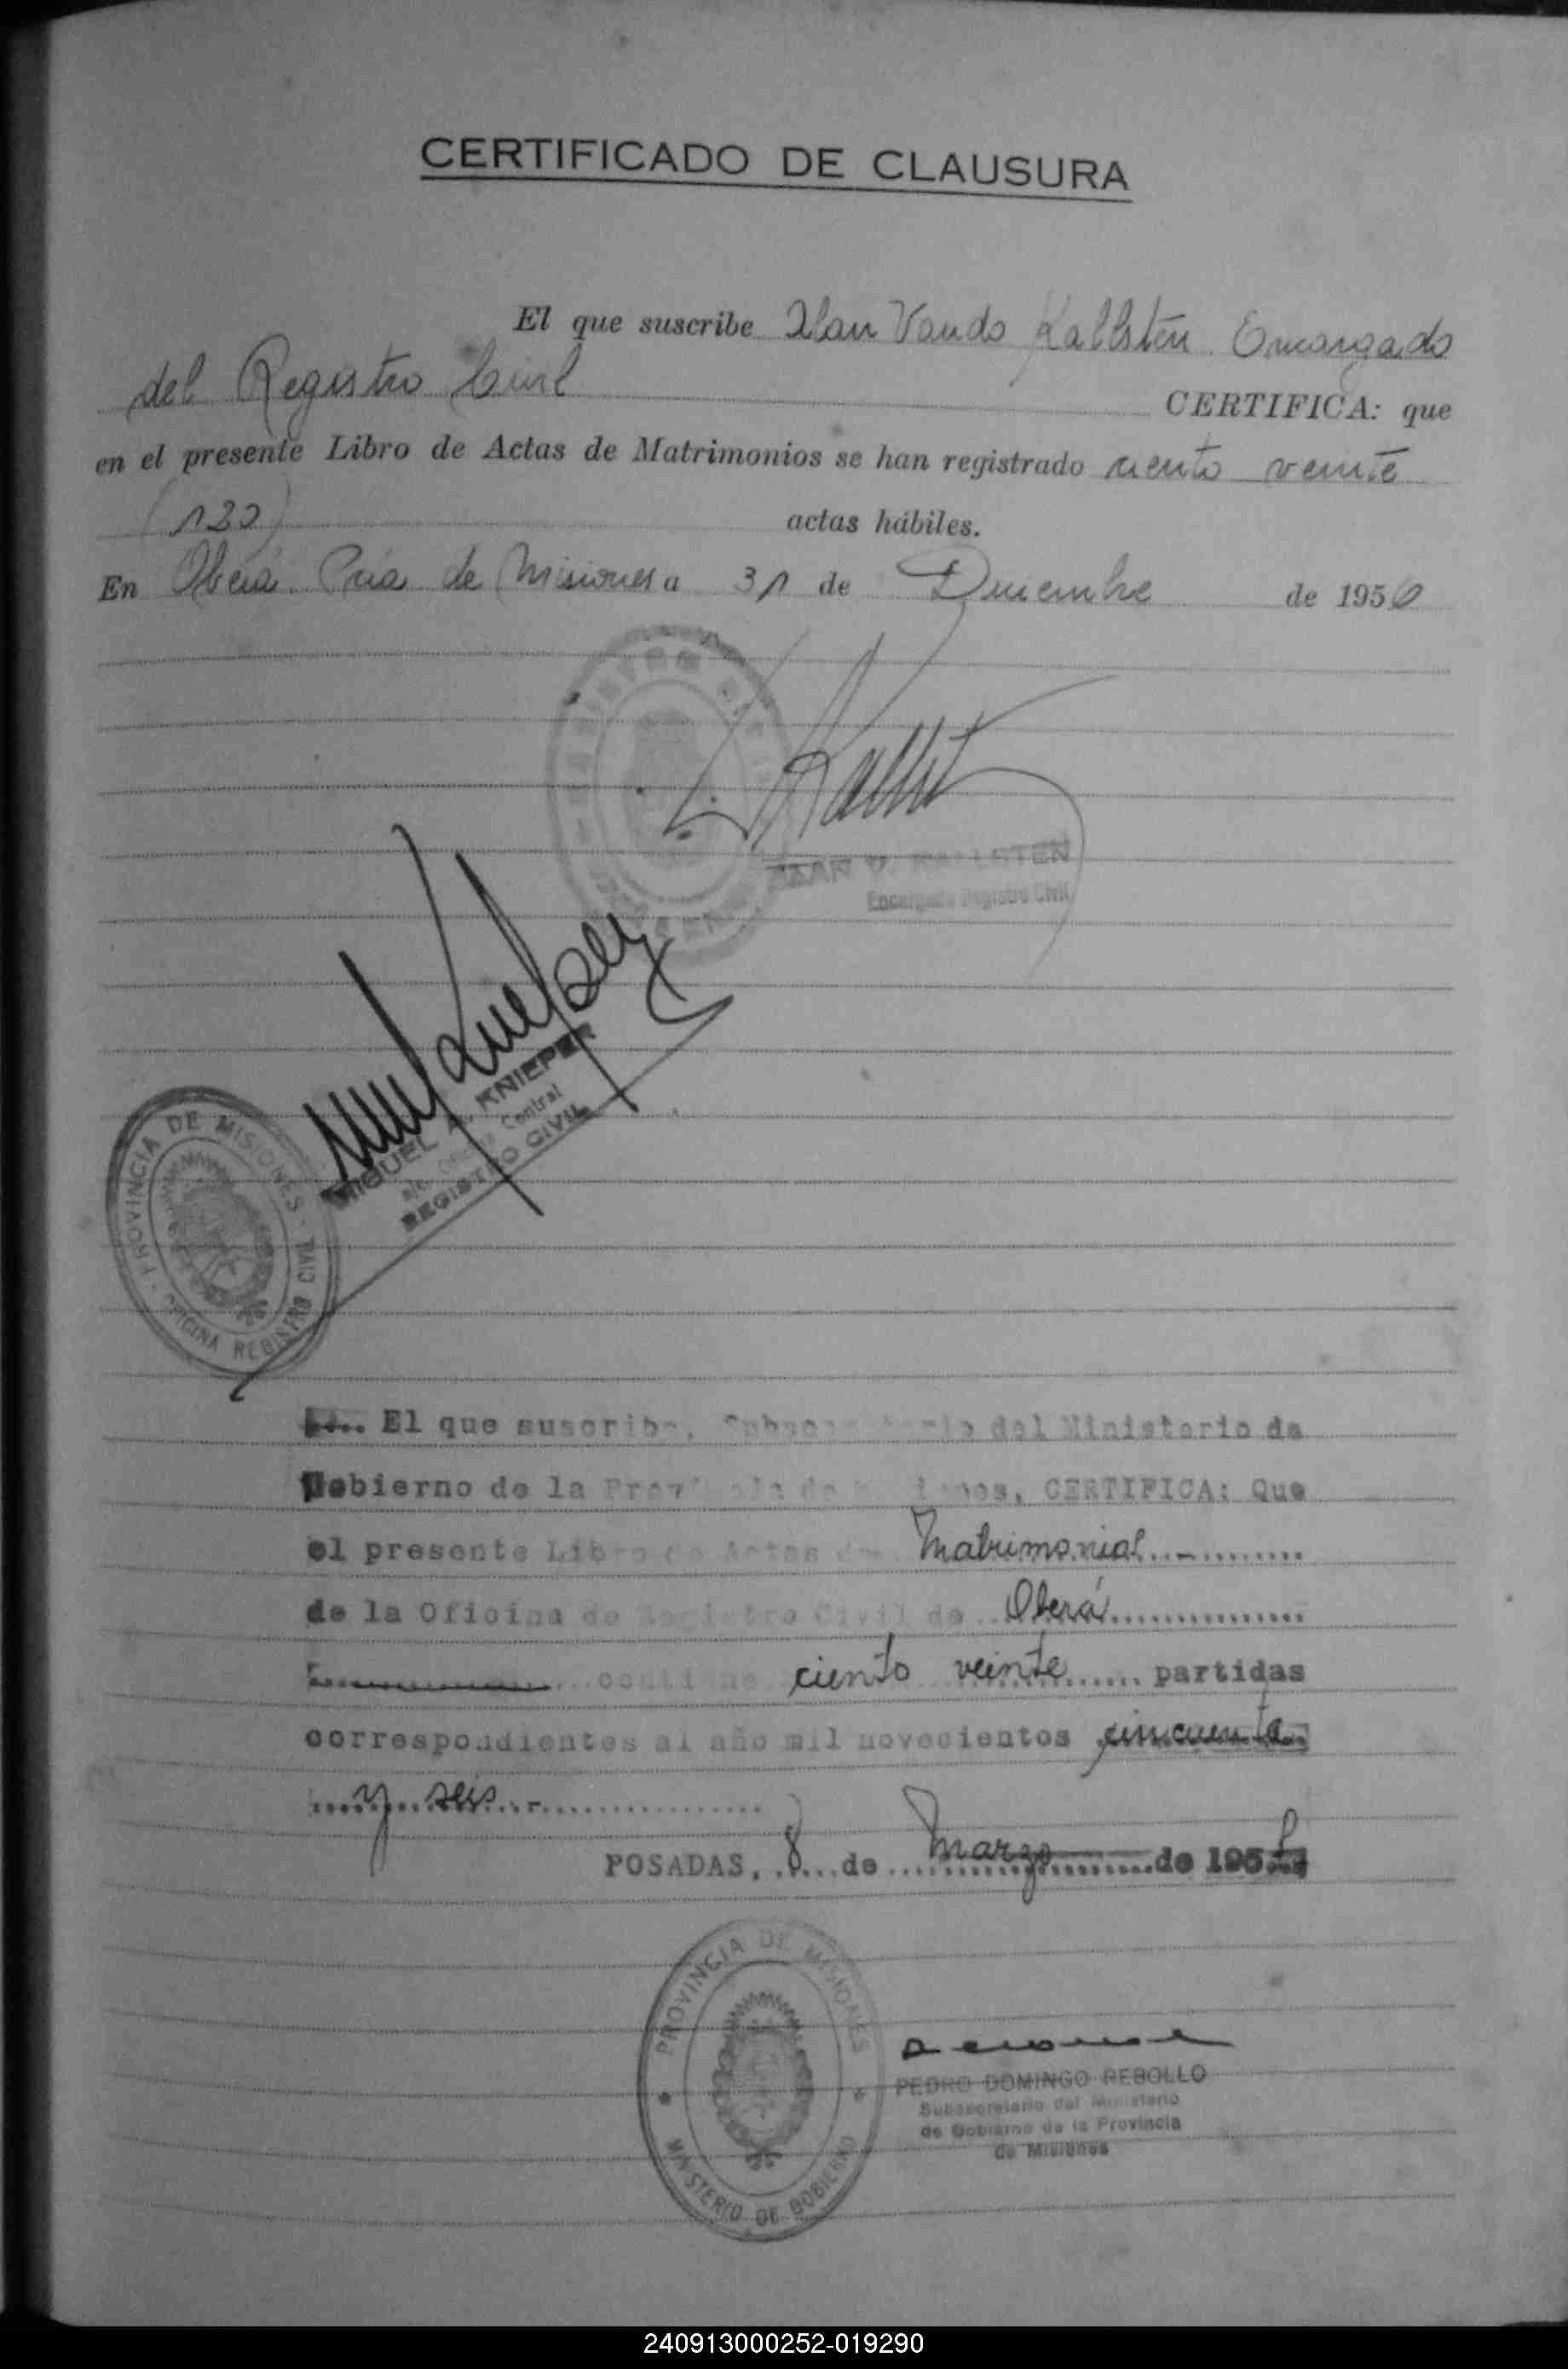 CERTIFICADO DE CLAUSURA
El que suscribe Alan Vando Kallsten Encargado
del Registro Civil CERTIFICA: que
en el presente Libro de Actas de Matrimonios se han registrado ciento veinte
(120) actas hábiles.
En Oberá Pcia de Misiones a 31 de Diciembre de 1956
ALAN V. KALLSTEN
Encargado Registro Civil
MIGUEL A. KNIEPER
a/c. Central
REGISTRO CIVIL
PROVINCIA DE MISIONES
OFICINA REGISTRO CIVIL
El que suscribe, Subsecretario del Ministerio de
Gobierno de la Provincia de Misiones, CERTIFICA: Que
el presente Libro de Actas de Matrimonial
de la Oficina de Registro Civil de Oberá
contiene ciento veinte partidas
correspondientes al año mil novecientos cincuenta
y seis
POSADAS, 8 de marzo de 195
PROVINCIA DE MISIONES
MINISTERIO DE GOBIERNO
PEDRO DOMINGO REBOLLO
Subsecretario del Ministerio
de Gobierno de la Provincia
de Misiones
240913000252-019290